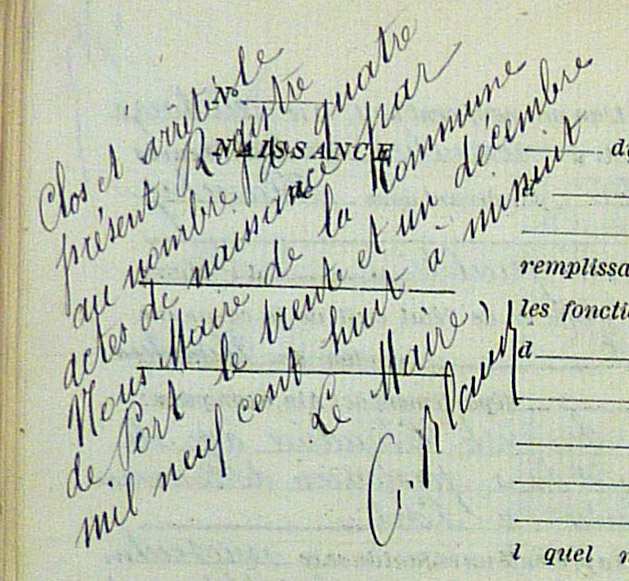 Clos et arrêté le
présent Registre
au nombre de quatre
actes de naissance par
Nous Maire de la Commune
de Port le trente et un décembre
mil neuf cent huit à minuit
Le Maire,
NAISSANCE
remplissa
les foncti
d
l quel